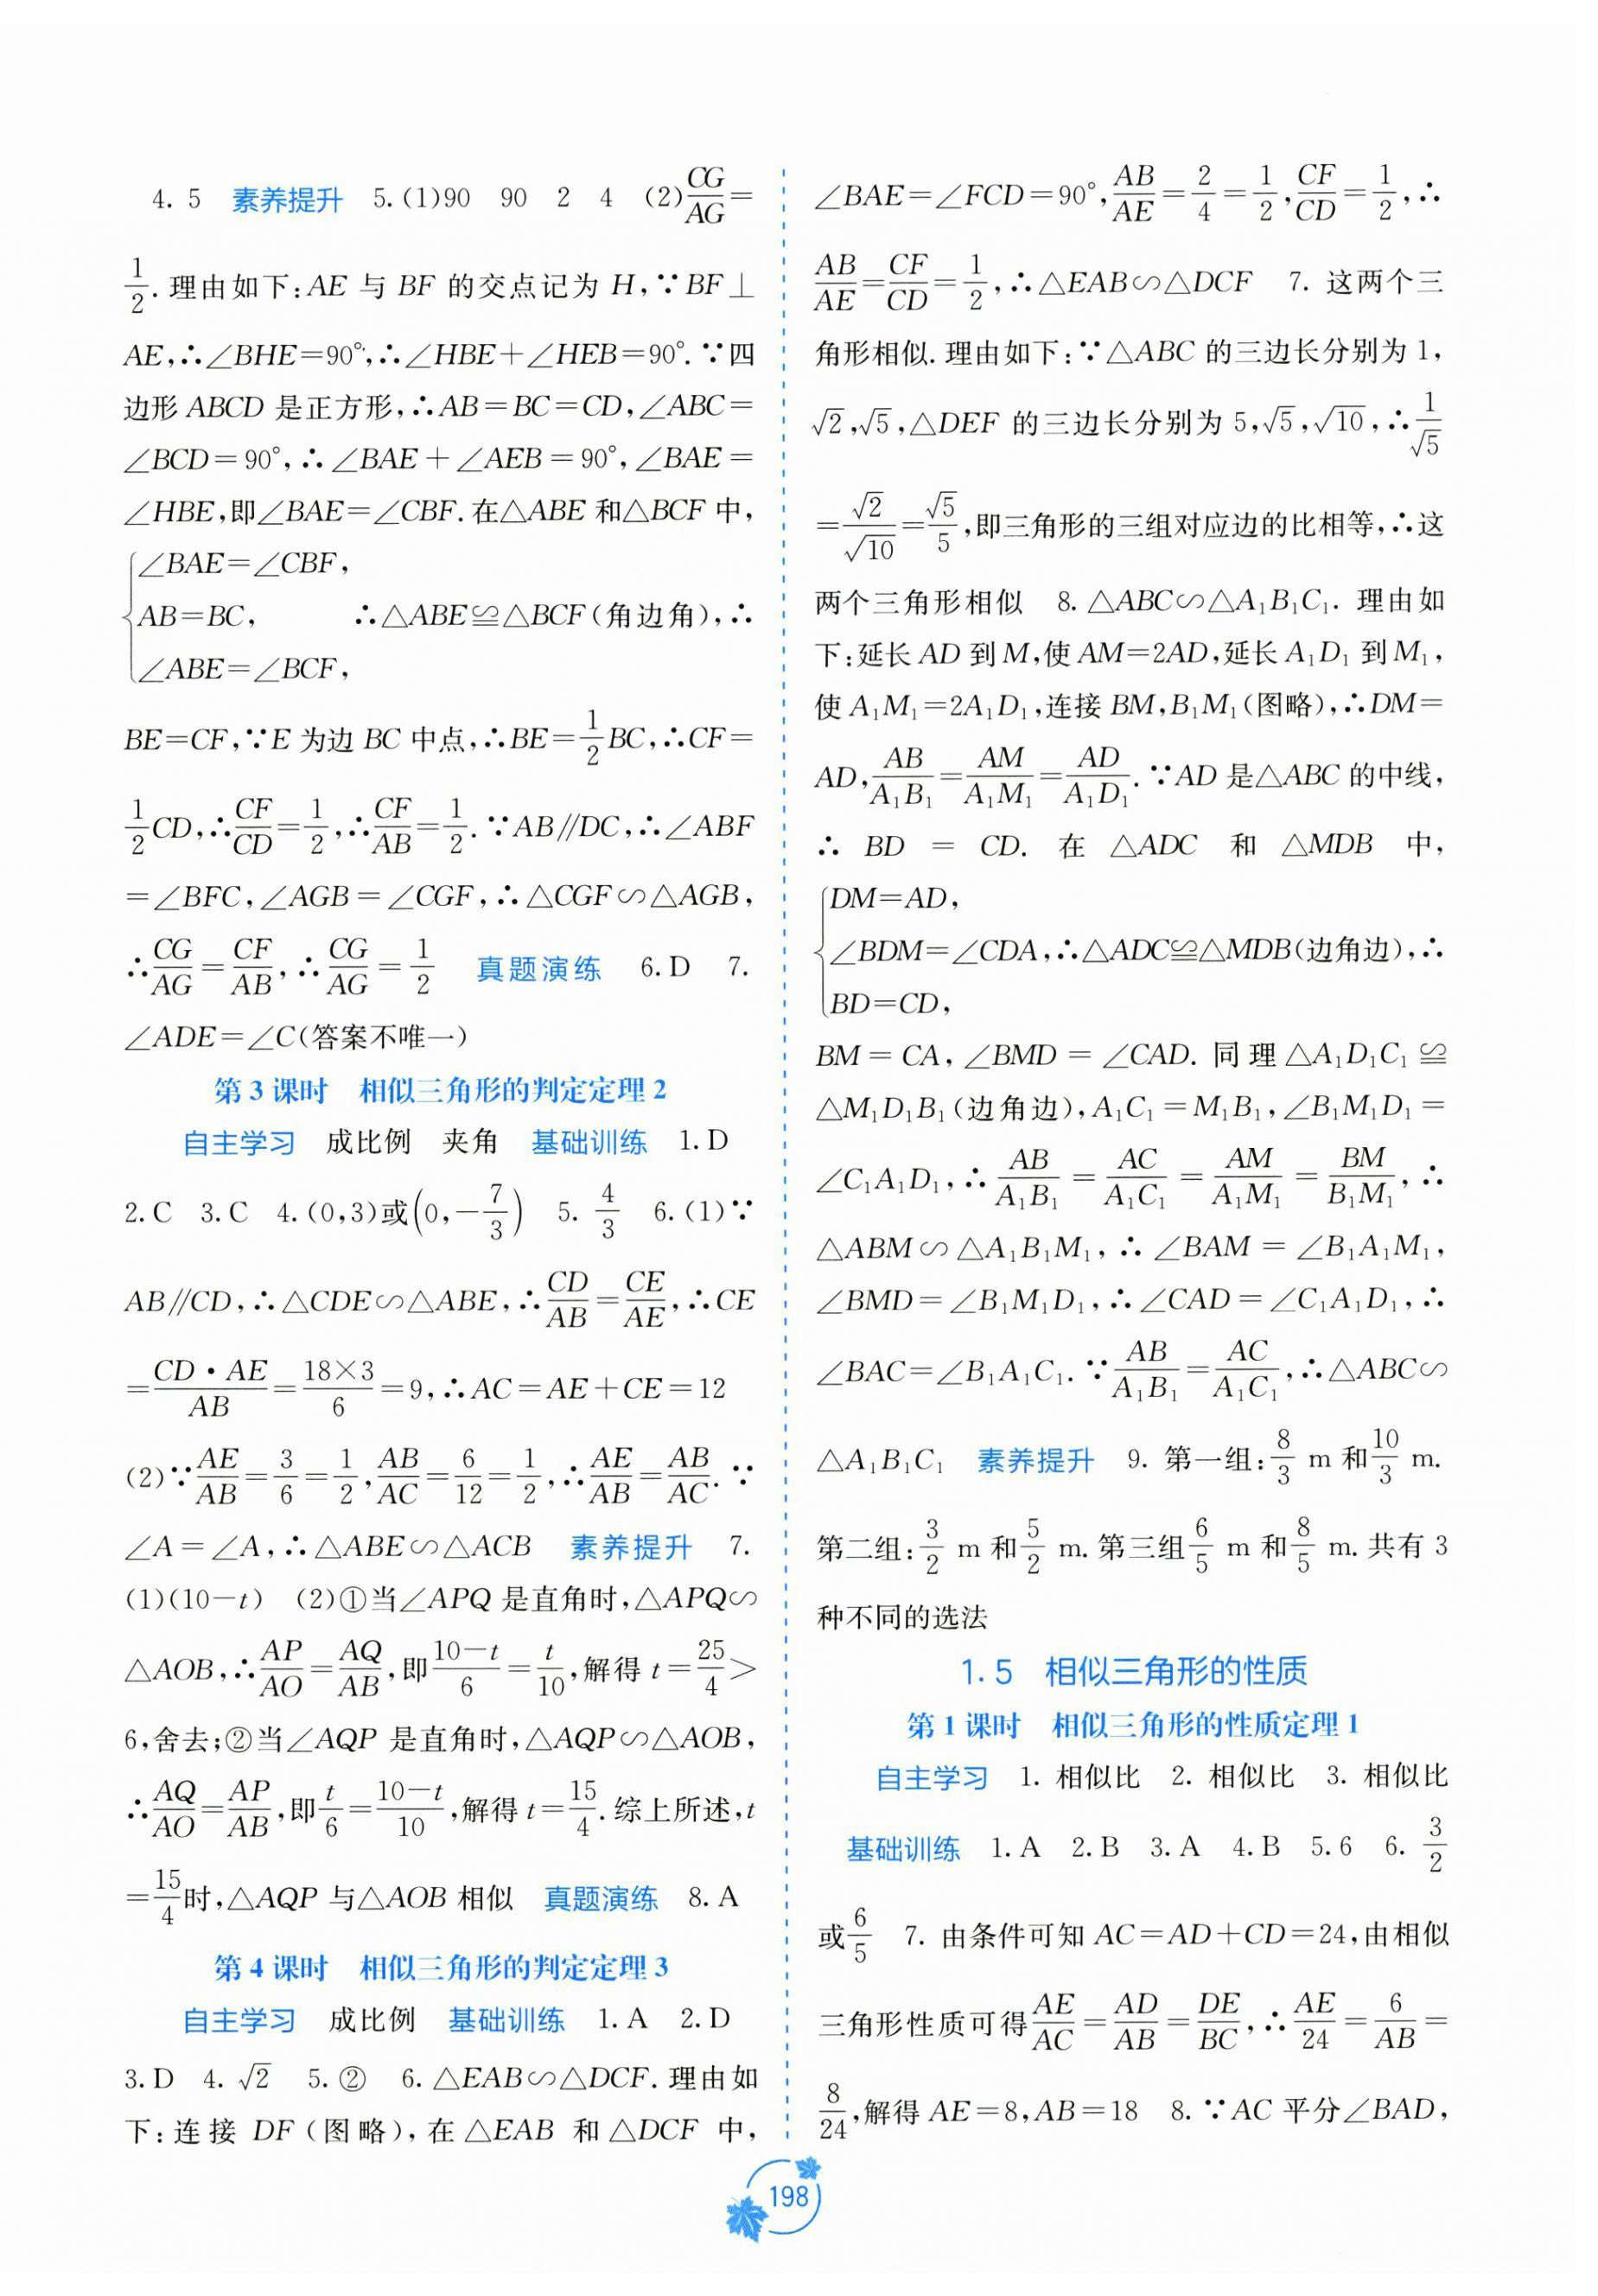 4. 5 素养提升 5. (1)90 90 2 4 (2)CG/AG=
1/2. 理由如下:AE 与 BF 的交点记为 H,∵BF⊥
AE,∴∠BHE=90°,∴∠HBE+∠HEB=90°. ∵四
边形 ABCD 是正方形,∴AB=BC=CD,∠ABC=
∠BCD=90°,∴∠BAE+∠AEB=90°,∠BAE=
∠HBE,即∠BAE=∠CBF. 在△ABE 和△BCF 中,
∠BAE=∠CBF,
AB=BC, ∴△ABE≌△BCF(角边角),∴
∠ABE=∠BCF,
BE=CF,∵E 为边 BC 中点,∴BE=1/2BC,∴CF=
1/2CD,∴CF/CD=1/2,∴CF/AB=1/2. ∵AB∥DC,∴∠ABF
=∠BFC,∠AGB=∠CGF,∴△CGF∽△AGB,
∴CG/AG=CF/AB,∴CG/AG=1/2 真题演练 6. D 7.
∠ADE=∠C(答案不唯一)
第 3 课时 相似三角形的判定定理 2
自主学习 成比例 夹角 基础训练 1. D
2. C 3. C 4. (0,3)或(0,-7/3) 5. 4/3 6. (1)∵
AB∥CD,∴△CDE∽△ABE,∴CD/AB=CE/AE,∴CE
=CD·AE/AB=18×3/6=9,∴AC=AE+CE=12
(2)∵AE/AB=3/6=1/2,AB/AC=6/12=1/2,∴AE/AB=AB/AC. ∵
∠A=∠A,∴△ABE∽△ACB 素养提升 7.
(1)(10-t) (2)①当∠APQ 是直角时,△APQ∽
△AOB,∴AP/AO=AQ/AB,即10-t/6=t/10,解得 t=25/4>
6,舍去;②当∠AQP 是直角时,△AQP∽△AOB,
∴AQ/AO=AP/AB,即t/6=10-t/10,解得 t=15/4. 综上所述,t
=15/4时,△AQP 与△AOB 相似 真题演练 8. A
第 4 课时 相似三角形的判定定理 3
自主学习 成比例 基础训练 1. A 2. D
3. D 4. √2 5. ② 6. △EAB∽△DCF. 理由如
下:连接 DF(图略),在△EAB 和△DCF 中,
∠BAE=∠FCD=90°,AB/AE=2/4=1/2,CF/CD=1/2,∴
AB/AE=CF/CD=1/2,∴△EAB∽△DCF 7. 这两个三
角形相似. 理由如下:∵△ABC 的三边长分别为 1,
√2,√5,△DEF 的三边长分别为 5,√5,√10,∴1/√5
=√2/√10=√5/5,即三角形的三组对应边的比相等,∴这
两个三角形相似 8. △ABC∽△A₁B₁C₁. 理由如
下:延长 AD 到 M,使 AM=2AD,延长 A₁D₁ 到 M₁,
使 A₁M₁=2A₁D₁,连接 BM,B₁M₁(图略),∴DM=
AD,AB/A₁B₁=AM/A₁M₁=AD/A₁D₁. ∵AD 是△ABC 的中线,
∴ BD = CD. 在 △ADC 和 △MDB 中,
DM=AD,
∠BDM=∠CDA,∴△ADC≌△MDB(边角边),∴
BD=CD,
BM=CA,∠BMD=∠CAD. 同理△A₁D₁C₁≌
△M₁D₁B₁(边角边),A₁C₁=M₁B₁,∠B₁M₁D₁=
∠C₁A₁D₁,∴AB/A₁B₁=AC/A₁C₁=AM/A₁M₁=BM/B₁M₁,∴
△ABM∽△A₁B₁M₁,∴∠BAM=∠B₁A₁M₁,
∠BMD=∠B₁M₁D₁,∴∠CAD=∠C₁A₁D₁,∴
∠BAC=∠B₁A₁C₁. ∵AB/A₁B₁=AC/A₁C₁,∴△ABC∽
△A₁B₁C₁ 素养提升 9. 第一组:8/3 m 和10/3 m.
第二组:3/2 m 和5/2 m. 第三组6/5 m 和8/5 m. 共有 3
种不同的选法
1.5 相似三角形的性质
第 1 课时 相似三角形的性质定理 1
自主学习 1. 相似比 2. 相似比 3. 相似比
基础训练 1. A 2. B 3. A 4. B 5. 6 6. 3/2
或6/5 7. 由条件可知 AC=AD+CD=24,由相似
三角形性质可得AE/AC=AD/AB=DE/BC,∴AE/24=6/AB=
8/24,解得 AE=8,AB=18 8. ∵AC 平分∠BAD,
198